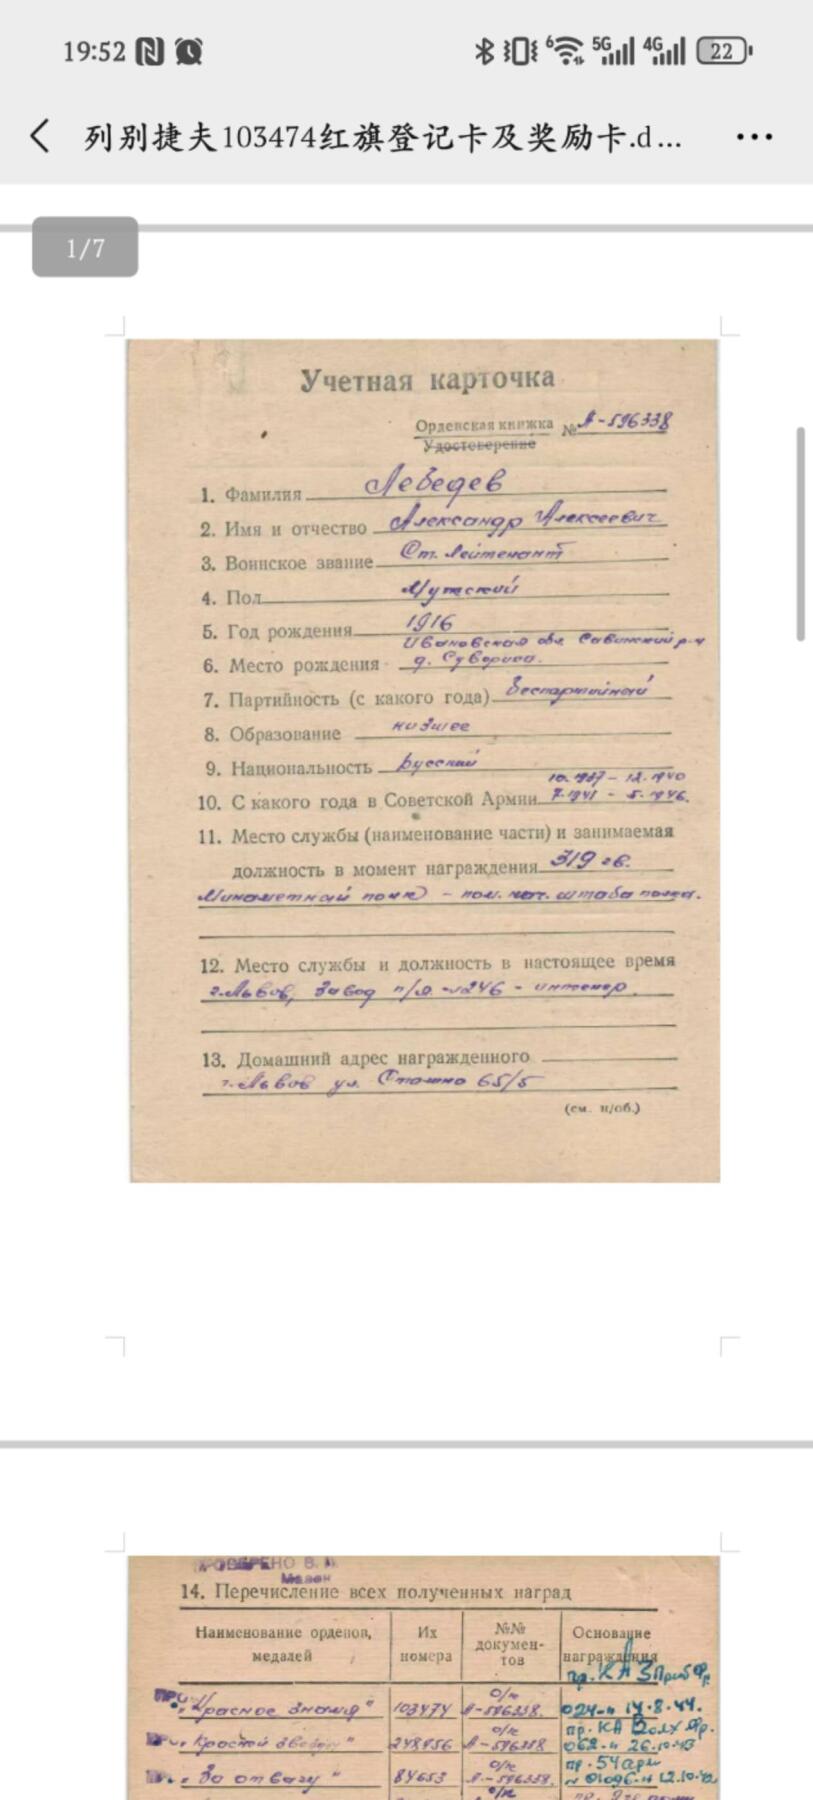 19:52
6 5G 4G 22
列别捷夫103474红旗登记卡及奖励卡.d...
1/7
Учетная карточка
Орденская книжка № А-596338
Удостоверение
1. Фамилия Лебедев
2. Имя и отчество Александр Алексеевич
3. Воинское звание Ст. Лейтенант
4. Пол Мужской
5. Год рождения 1916
Ивановская обл. Савинский р-н
6. Место рождения д.
7. Партийность (с какого года) Беспартийный
8. Образование низшее
9. Национальность русский
10.1937 - 12.1940
10. С какого года в Советской Армии 7.1941 - 5.1946.
11. Место службы (наименование части) и занимаемая
должность в момент награждения 319 гв.
Минометный полк - пом. нач. штаба полка.
12. Место службы и должность в настоящее время
г. Львов, Завод п/я - инженер
13. Домашний адрес награжденного
г. Львов ул. 65/5
(см. н/об.)
ПРОВЕРЕНО В.
14. Перечисление всех полученных наград
Наименование орденов, медалей
Их номера
№№ докумен-тов
Основание награждения
пр. КА 3 Приб Фр.
"Красное Знамя" 103474 о/к А-596338. 024-н 14.8.44.
пр. КА Волх Фр.
"Красной звезды" 248456 о/к А-596338 062-н 26.10.43
пр. 54 арм
"За отвагу" 84653 о/к А-596338. н 12.10.42
о/к